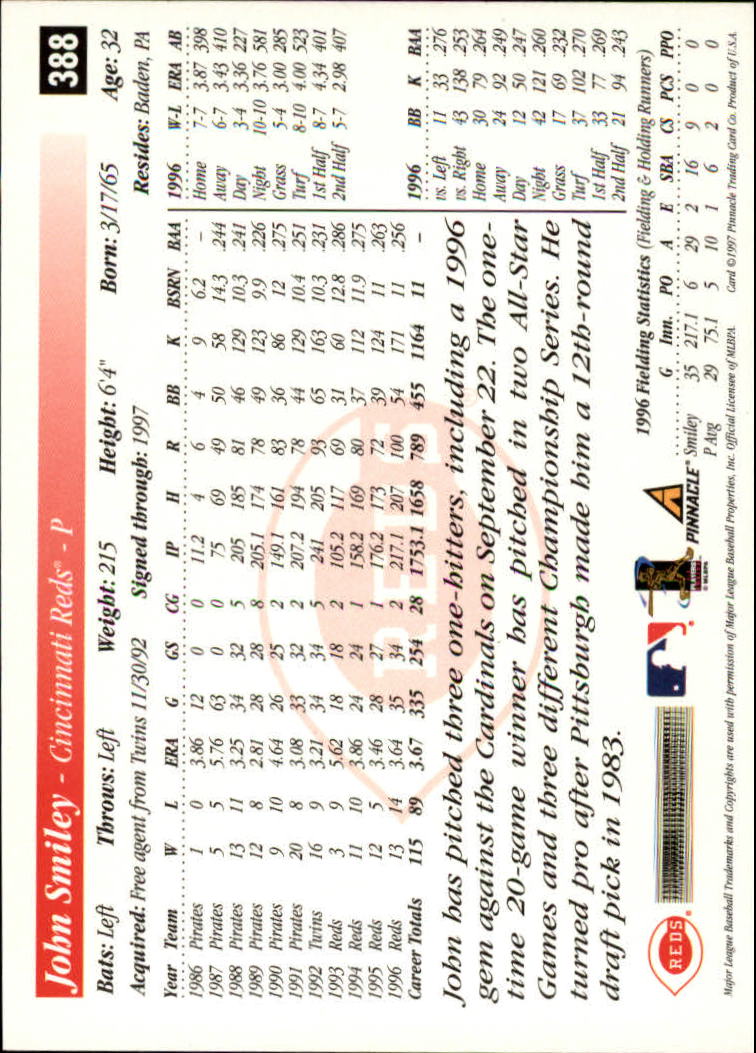 John Smiley - Cincinnati Reds® - P 388
Bats: Left Throws: Left Weight: 215 Height: 6'4" Born: 3/17/65 Age: 32
Acquired: Free agent from Twins 11/30/92 Signed through: 1997 Resides: Baden, PA
Year Team W L ERA G GS CG IP H R BB K BSRN BAA
1986 Pirates 1 0 3.86 12 0 0 11.2 4 6 4 9 6.2 –
1987 Pirates 5 5 5.76 63 0 0 75 69 49 50 58 14.3 .244
1988 Pirates 13 11 3.25 34 32 5 205 185 81 46 129 10.3 .241
1989 Pirates 12 8 2.81 28 28 8 205.1 174 78 49 123 9.9 .226
1990 Pirates 9 10 4.64 26 25 2 149.1 161 83 36 86 12 .275
1991 Pirates 20 8 3.08 33 32 2 207.2 194 78 44 129 10.4 .251
1992 Twins 16 9 3.21 34 34 5 241 205 93 65 163 10.3 .231
1993 Reds 3 9 5.62 18 18 2 105.2 117 69 31 60 12.8 .286
1994 Reds 11 10 3.86 24 24 1 158.2 169 80 37 112 11.9 .275
1995 Reds 12 5 3.46 28 27 1 176.2 173 72 39 124 11 .263
1996 Reds 13 14 3.64 35 34 2 217.1 207 100 54 171 11 .256
Career Totals 115 89 3.67 335 254 28 1753.1 1658 789 455 1164 11 –
1996 W-L ERA AB
Home 7-7 3.87 398
Away 6-7 3.43 410
Day 3-4 3.36 227
Night 10-10 3.76 581
Grass 5-4 3.00 285
Turf 8-10 4.00 523
1st Half 8-7 4.34 401
2nd Half 5-7 2.98 407
1996 BB K BAA
vs. Left 11 33 .276
vs. Right 43 138 .253
Home 30 79 .264
Away 24 92 .249
Day 12 50 .247
Night 42 121 .260
Grass 17 69 .232
Turf 37 102 .270
1st Half 33 77 .269
2nd Half 21 94 .243
REDS
John has pitched three one-hitters, including a 1996
gem against the Cardinals on September 22. The one-
time 20-game winner has pitched in two All-Star
Games and three different Championship Series. He
turned pro after Pittsburgh made him a 12th-round
draft pick in 1983.
1996 Fielding Statistics (Fielding & Holding Runners)
G Inn. PO A E SBA CS PCS PPO
Smiley 35 217.1 6 29 2 16 9 0 0
P Avg 29 75.1 5 10 1 6 2 0 0
REDS
PLAYERS
© MLBPA
PINNACLE®
Major League Baseball Trademarks and Copyrights are used with permission of Major League Baseball Properties, Inc. Official Licensee of MLBPA. Card ©1997 Pinnacle Trading Card Co. Product of U.S.A.